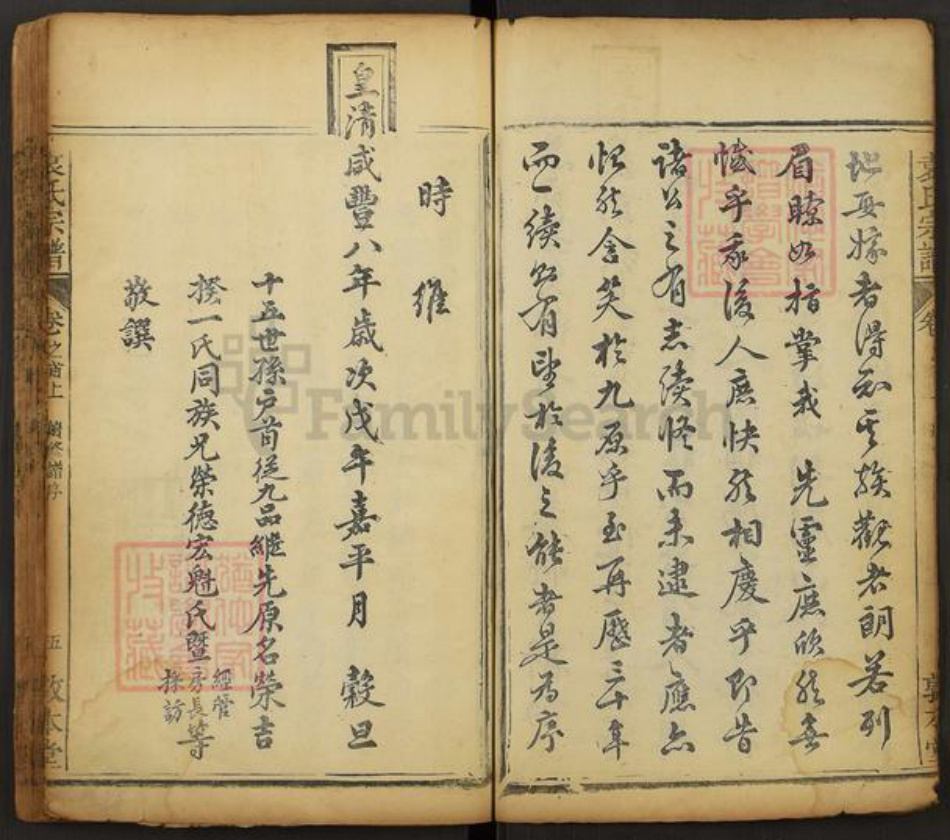 地再嫁者得知其族觀者朗若列
眉瞭如指掌哉先靈庶欣然無
憾乎我後人庶快然相慶乎即昔
諸公之有志續修而未逮者應亦
怡然含笑於九原乎至再歷三十年
而一續留有望於後之能者是為序
時維
皇清咸豐八年歲次戊午嘉平月 穀旦
十五世孫 從九品繼先原名榮吉
揆一氏同族兄榮德宏魁氏暨
經管
房長等
採訪
敬譔
袁氏宗譜
卷之首上
續修譜序
五
敦本堂
袁氏宗譜
卷
敦本堂
收藏
FamilySearch